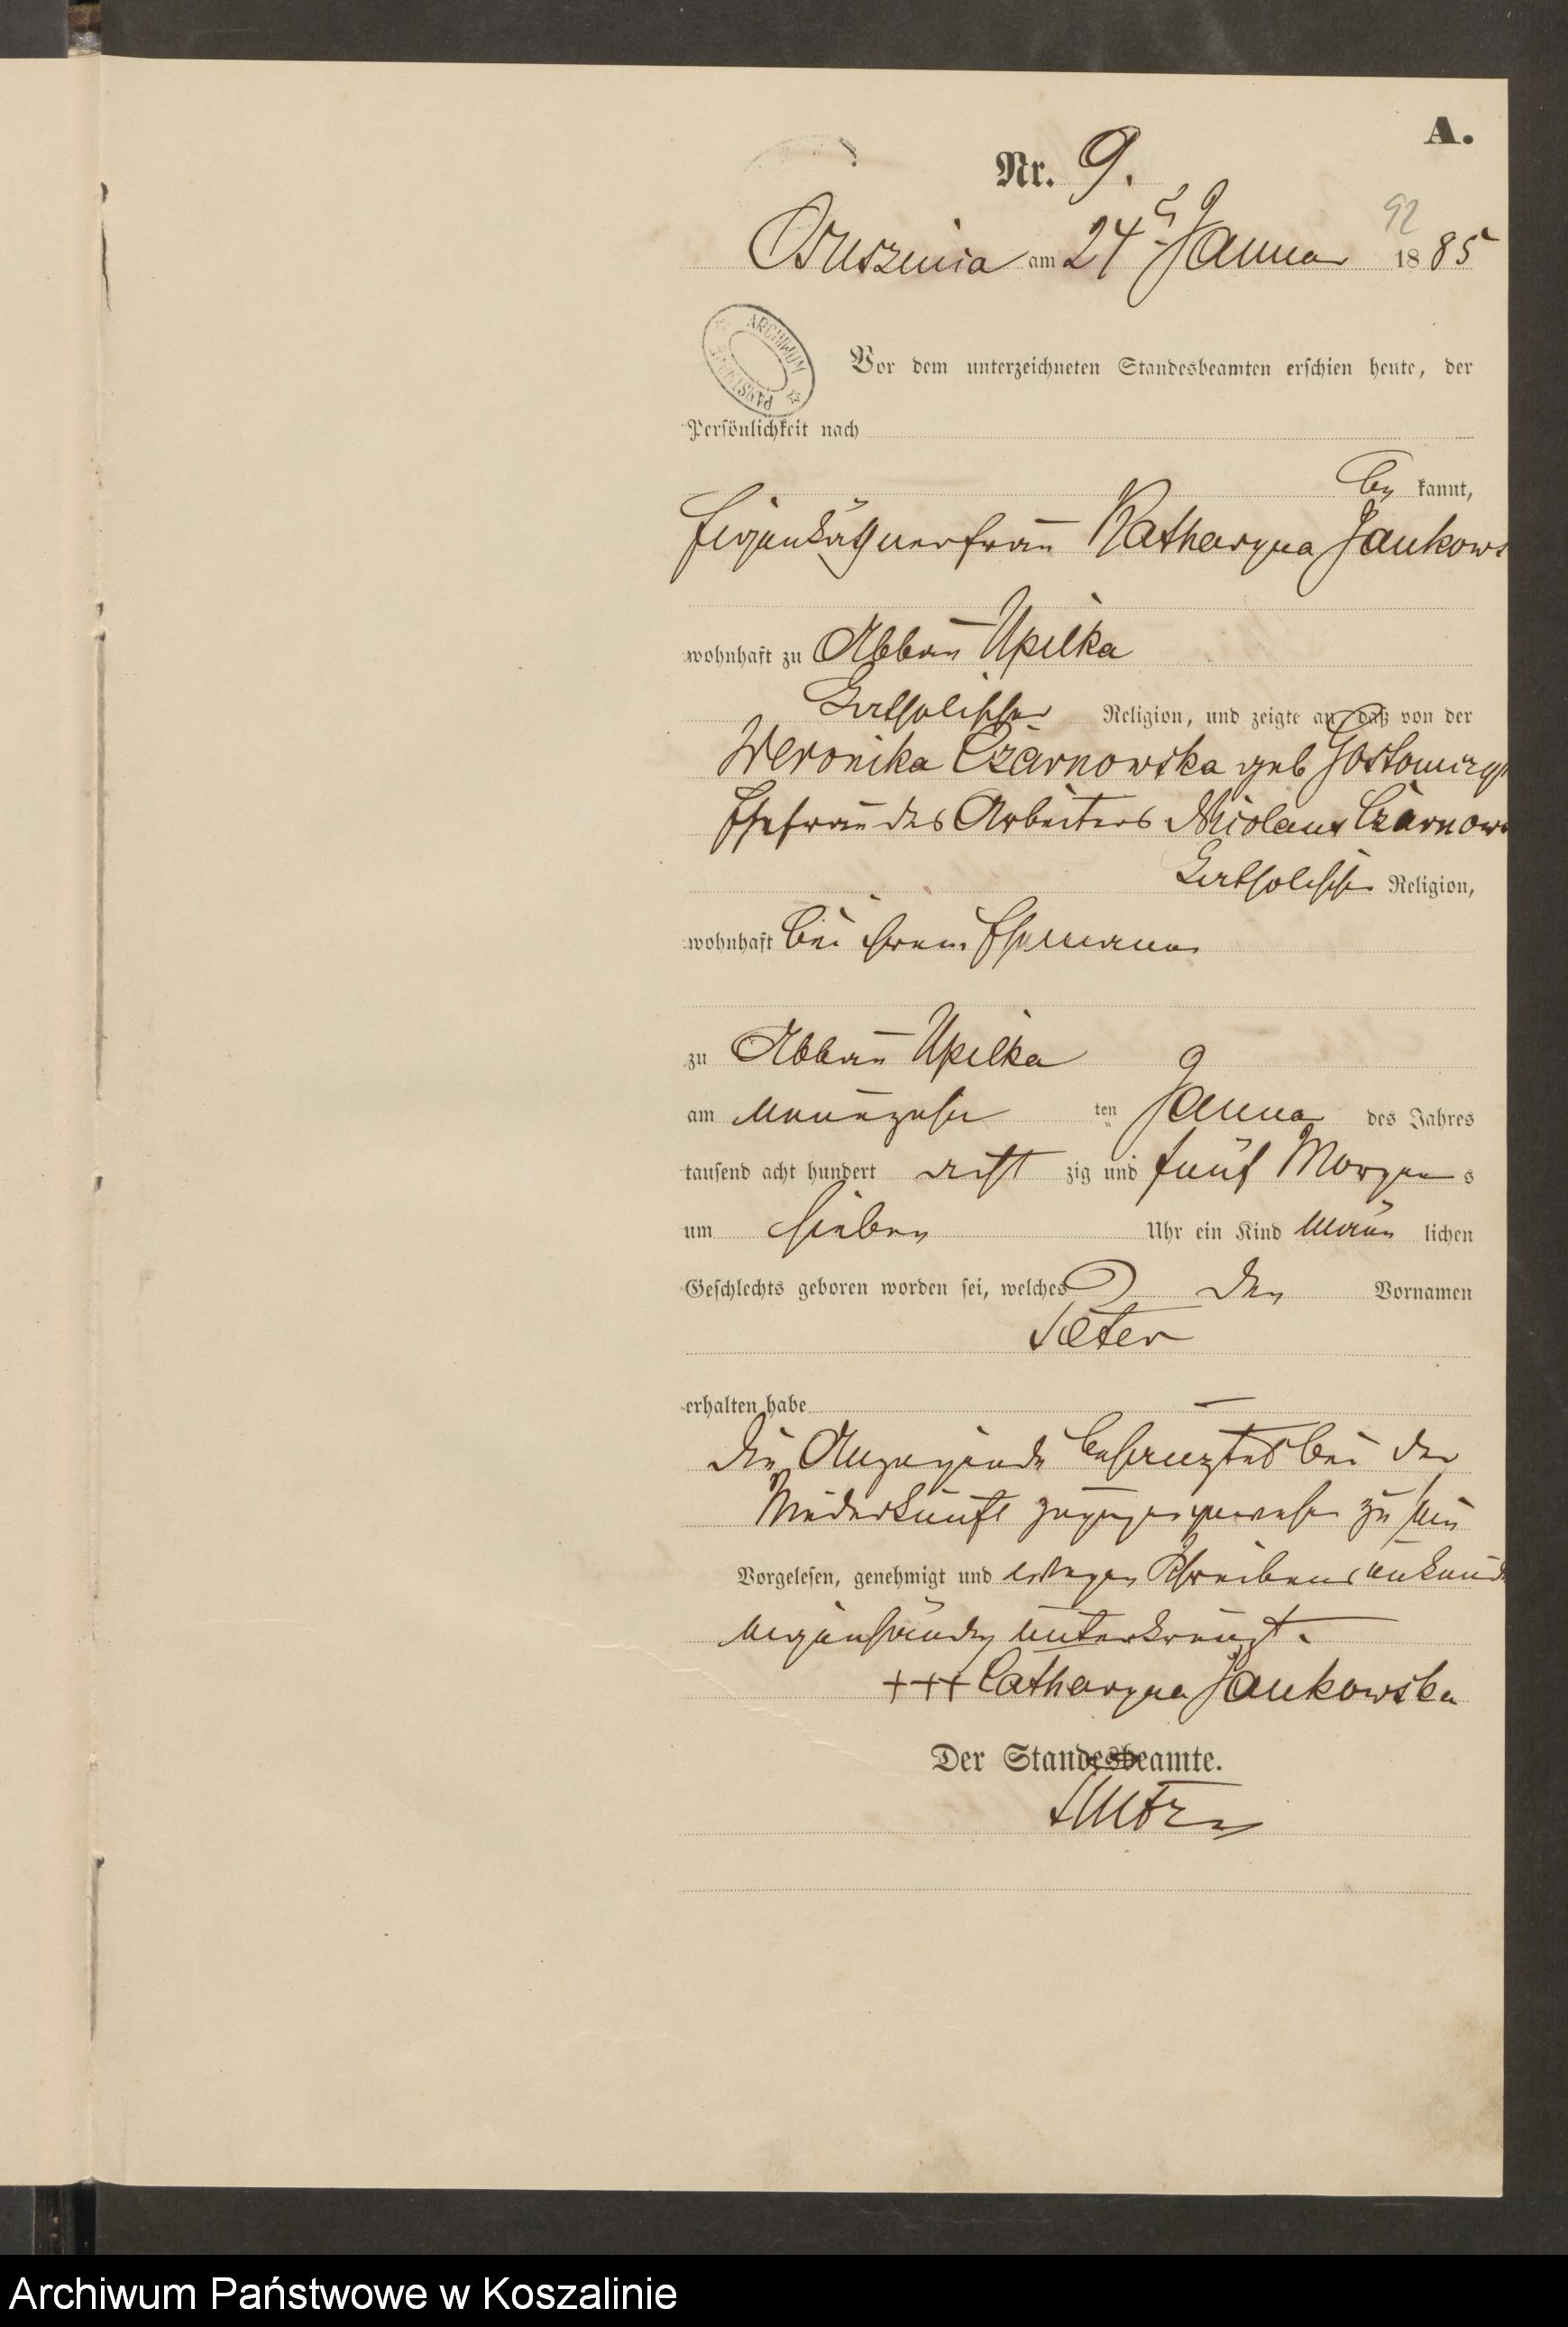 A.
Nr. 9.
92
Osuszniça am 24 Januar 1885
ARCHIWUM PAŃSTWOWE
Vor dem unterzeichneten Standesbeamten erschien heute, der
Persönlichkeit nach
be kannt,
Eigenkäthnerfrau Katharyna Jankows
wohnhaft zu Abbau Upilka
katholischer Religion, und zeigte an, daß von der
Weronika Czarnowska geb Gostomczy
Ehefrau des Arbeiters Nicolaus Czarnows
katholischer Religion,
wohnhaft bei ihrem Ehemann
zu Abbau Upilka
am neunzehn ten Januar des Jahres
tausend acht hundert acht zig und fünf Morgens
um sieben Uhr ein Kind männ lichen
Geschlechts geboren worden sei, welches den Vornamen
Peter
erhalten habe
Die Anzeigende bei der
Niederkunft zugegen gewesen zu sein
Vorgelesen, genehmigt und wegen Schreibensunkund
eigenhändig unterkreuzt.
+++ Catharyna Jankowska
Der Standesbeamte.
Archiwum Państwowe w Koszalinie